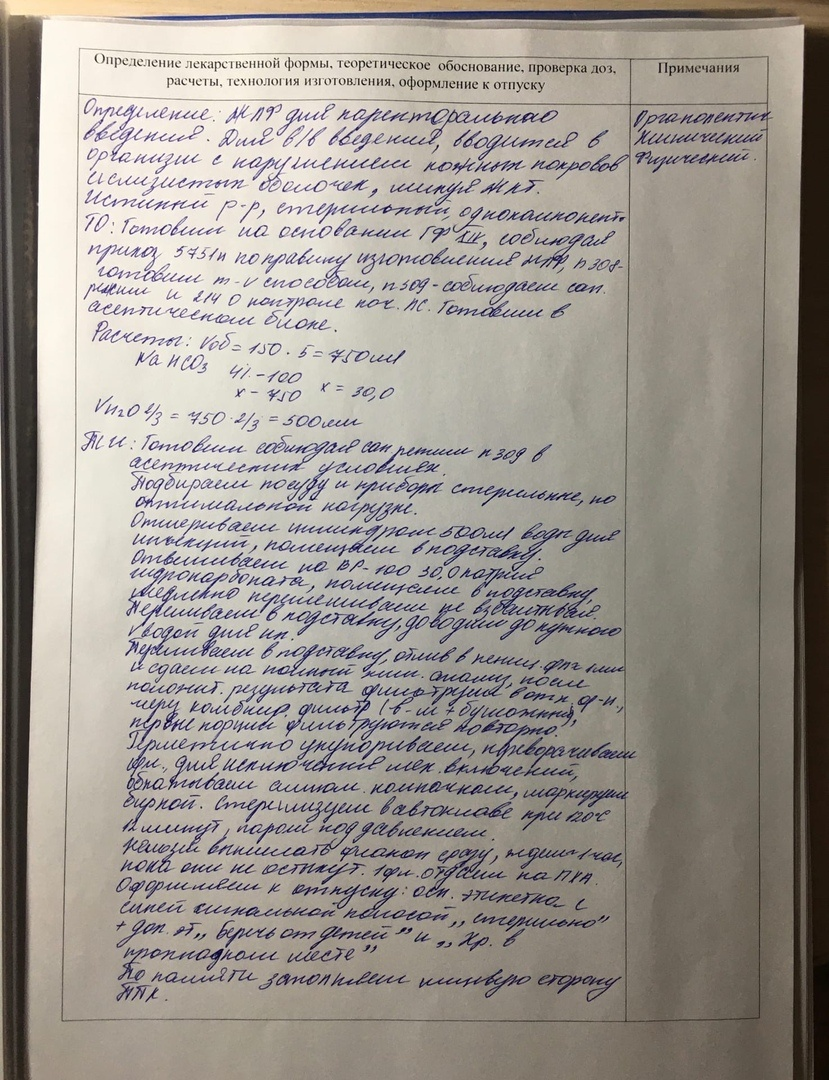 Определение лекарственной формы, теоретическое обоснование, проверка доз,
расчеты, технология изготовления, оформление к отпуску
Примечания
Определение: ЖЛФ для парентерального
введения. Для в/в введения, вводится в
организм с нарушением кожных покровов
и слизистых оболочек, минуя ЖКТ.
Истинный р-р, стерильный, однокомпонент.
Органолептич
Химический
Физический.
ТО: Готовим на основании ГФ соблюдая
приказ 751н по правилу изготовления ЖЛФ, п 308-
готовим m-v способом, п 309-соблюдаем сан.
режим и 214 о контроле кач. ЛС. Готовим в
асептическом блоке.
Расчеты: Vоб = 150 · 5 = 750 мл
NaHCO3 4% - 100
x - 750 x = 30,0
VH2O 2/3 = 750 · 2/3 = 500 мл
ТИ: Готовим соблюдая сан режим п 309 в
асептических условиях.
Подбираем посуду и приборы стерильные, по
оптимальной нагрузке.
Отмериваем цилиндром 500мл воды для
инъекций, помещаем в подставку.
Отвешиваем на ВР-100 30,0 натрия
гидрокарбоната, помещаем в подставку,
медленно перемешиваем не взбалтывая.
Переливаем в подставку, доводим до нужного
V водой для ин.
Переливаем в подставку, отлив в пениц. фл
и сдаем на полный хим. анализ, после
полож. результата фильтруем в отп. фл-н,
через комбинир. фильтр (в-та + бумажный),
первые порции фильтруются повторно.
Герметично укупориваем, переворачиваем
фл., для исключения мех. включений,
обкатываем алюмин. колпачком, маркируем
биркой. Стерилизуем в автоклаве при 120°С
12 минут, паром под давлением.
Нельзя вынимать флакон сразу, ждем 1 час,
пока они не остынут. 1 фл. отдаем на ПХА.
Оформляем к отпуску: осн. этикетка с
синей сигнальной полосой „стерильно”
+ доп. эт „Беречь от детей” и „Хр. в
прохладном месте”
По памяти заполняем лицевую сторону
ППК.